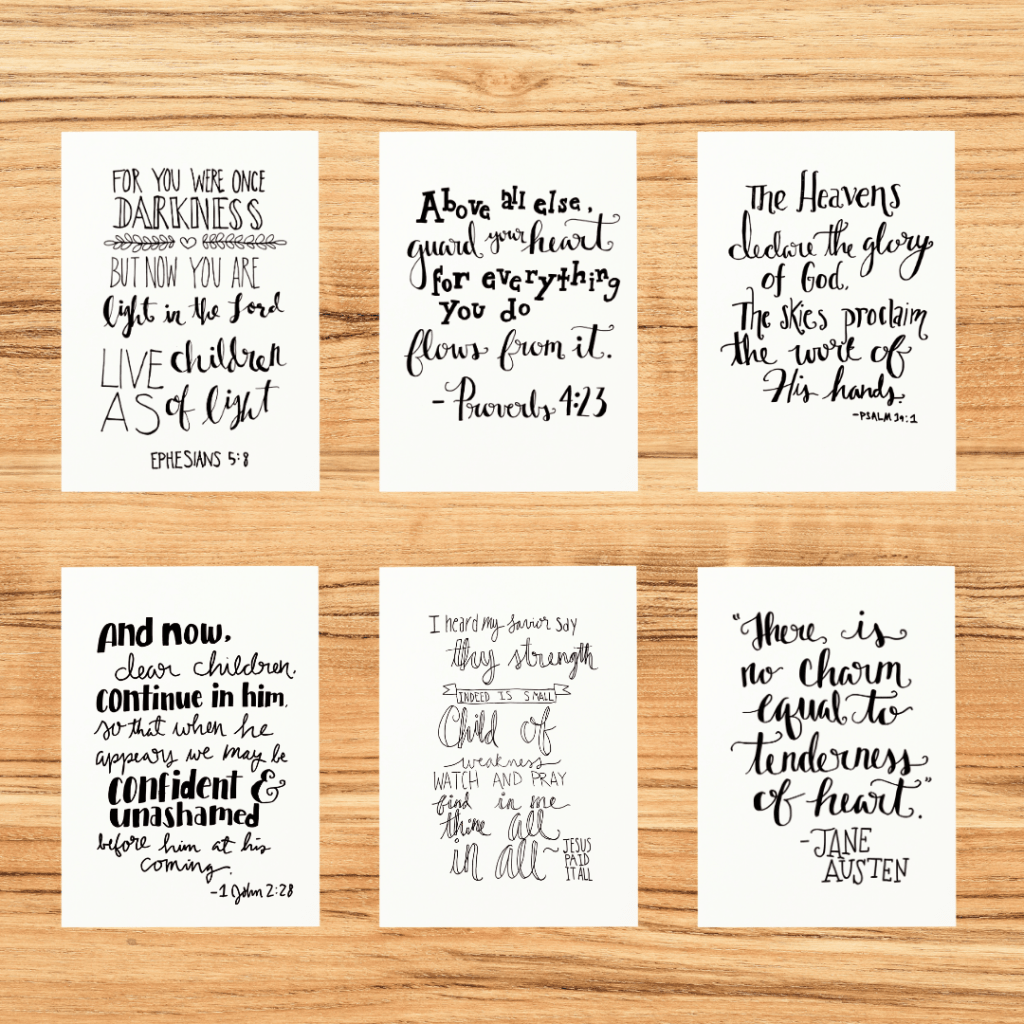 FOR YOU WERE ONCE
DARKNESS
BUT NOW YOU ARE
light in the Lord
LIVE children
AS of light
EPHESIANS 5:8
Above all else,
guard your heart
for everything
you do
flows from it.
-Proverbs 4:23
The Heavens
declare the glory
of God.
The skies proclaim
the work of
His hands.
-PSALM 19:1
And now,
dear children,
continue in him,
so that when he
appears we may be
confident &
unashamed
before him at his
coming.
-1 John 2:28
I heard my Savior say
thy strength
INDEED IS SMALL
Child of
weakness
WATCH AND PRAY
find in me
thine all
in all
~JESUS
PAID
IT ALL
"There is
no charm
equal to
tenderness
of heart."
-JANE
AUSTEN